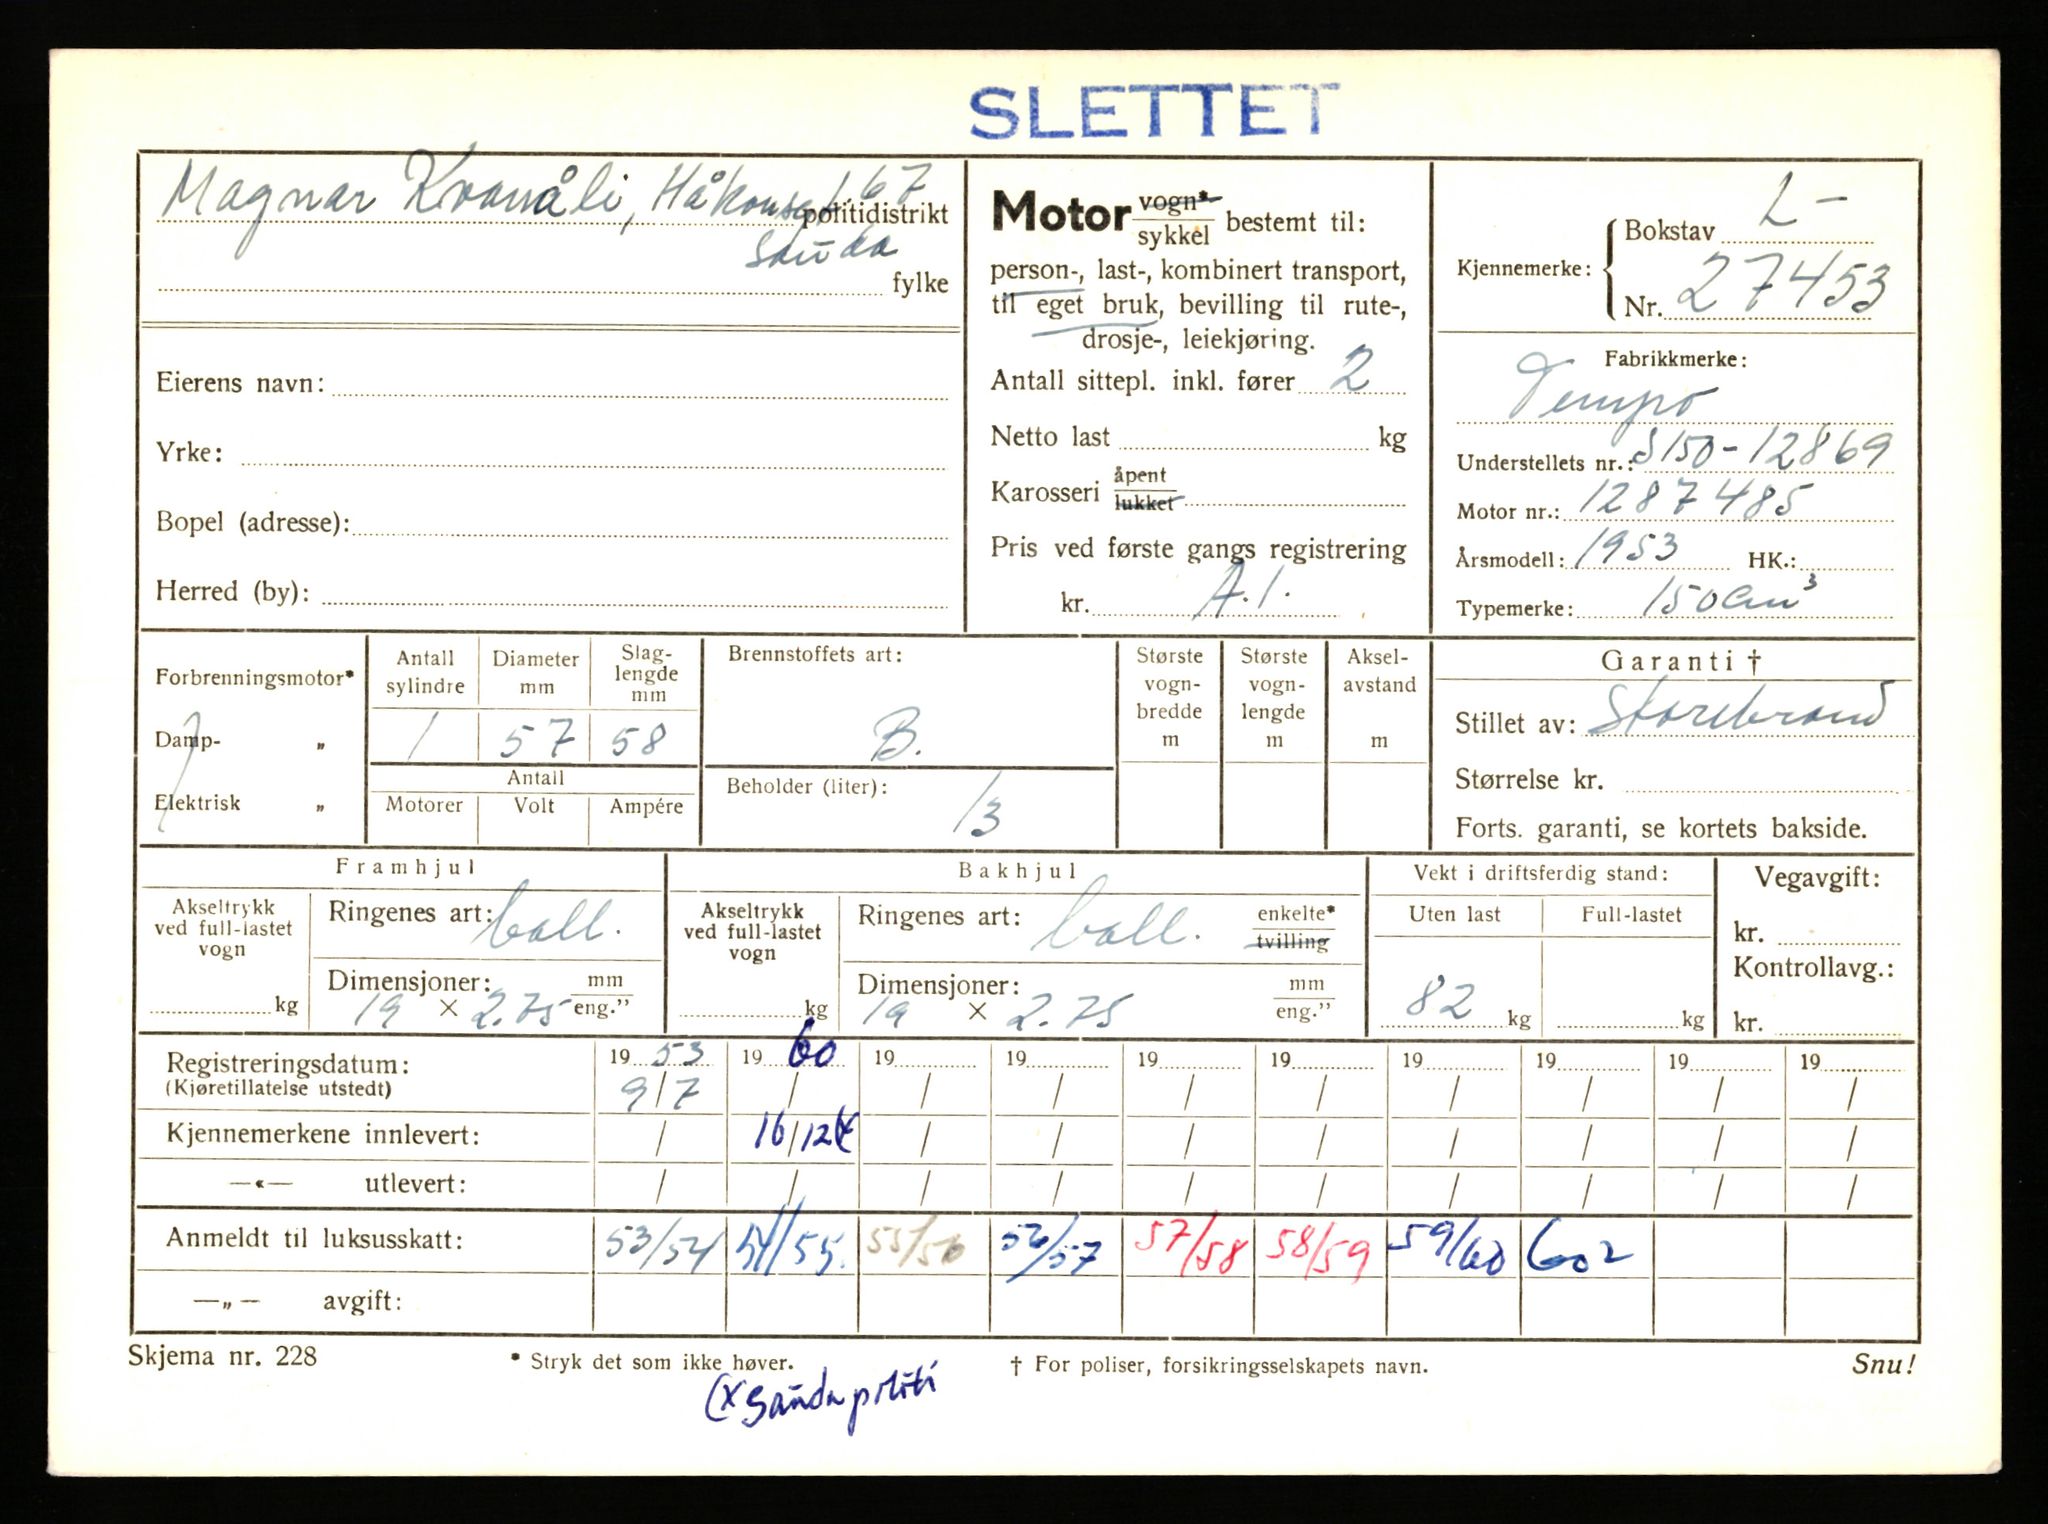 SLETTET
Magnar Kvanåli, Håkonsgt. 67
politidistrikt
Sauda
fylke
Eierens navn:
Yrke:
Bopel (adresse):
Herred (by):
Motor vogn* / sykkel bestemt til:
person-, last-, kombinert transport,
til eget bruk, bevilling til rute-,
drosje-, leiekjøring.
Antall sittepl. inkl. fører 2
Netto last kg
Karosseri åpent / lukket
Pris ved første gangs registrering
kr. A.1.
Kjennemerke: Bokstav L-
Nr. 27453
Fabrikkmerke:
Tempo
Understellets nr.: S150-12869
Motor nr.: 1287485
Årsmodell: 1953 HK.:
Typemerke: 150 cm³
Forbrenningsmotor*
Damp- „
Elektrisk „
Antall sylindre 1
Diameter mm 57
Slaglengde mm 58
Antall
Motorer Volt Ampére
Brennstoffets art:
B.
Beholder (liter):
13
Største vogn-bredde m
Største vogn-lengde m
Aksel-avstand m
Garanti †
Stillet av: Storebrand
Størrelse kr.
Forts. garanti, se kortets bakside.
Framhjul
Akseltrykk ved full-lastet vogn kg
Ringenes art: ball.
Dimensjoner: mm / eng.”
19 × 2.75
Bakhjul
Akseltrykk ved full-lastet vogn kg
Ringenes art: ball. enkelte* / tvilling
Dimensjoner: mm / eng.”
19 × 2.75
Vekt i driftsferdig stand:
Uten last Full-lastet
82 kg kg
Vegavgift:
kr.
Kontrollavg.:
kr.
Registreringsdatum: 19 53 19 60 19 19 19 19 19 19 19 19
(Kjøretillatelse utstedt) 9/7 / / / / / / / / /
Kjennemerkene innlevert: / 16/12 (x / / / / / / / /
—«— utlevert: / / / / / / / / / /
Anmeldt til luksusskatt: 53/54 54/55. 55/56 56/57 57/58 58/59 59/60 602
—„— avgift:
Skjema nr. 228 * Stryk det som ikke høver. † For poliser, forsikringsselskapets navn. Snu!
(x Sauda politi